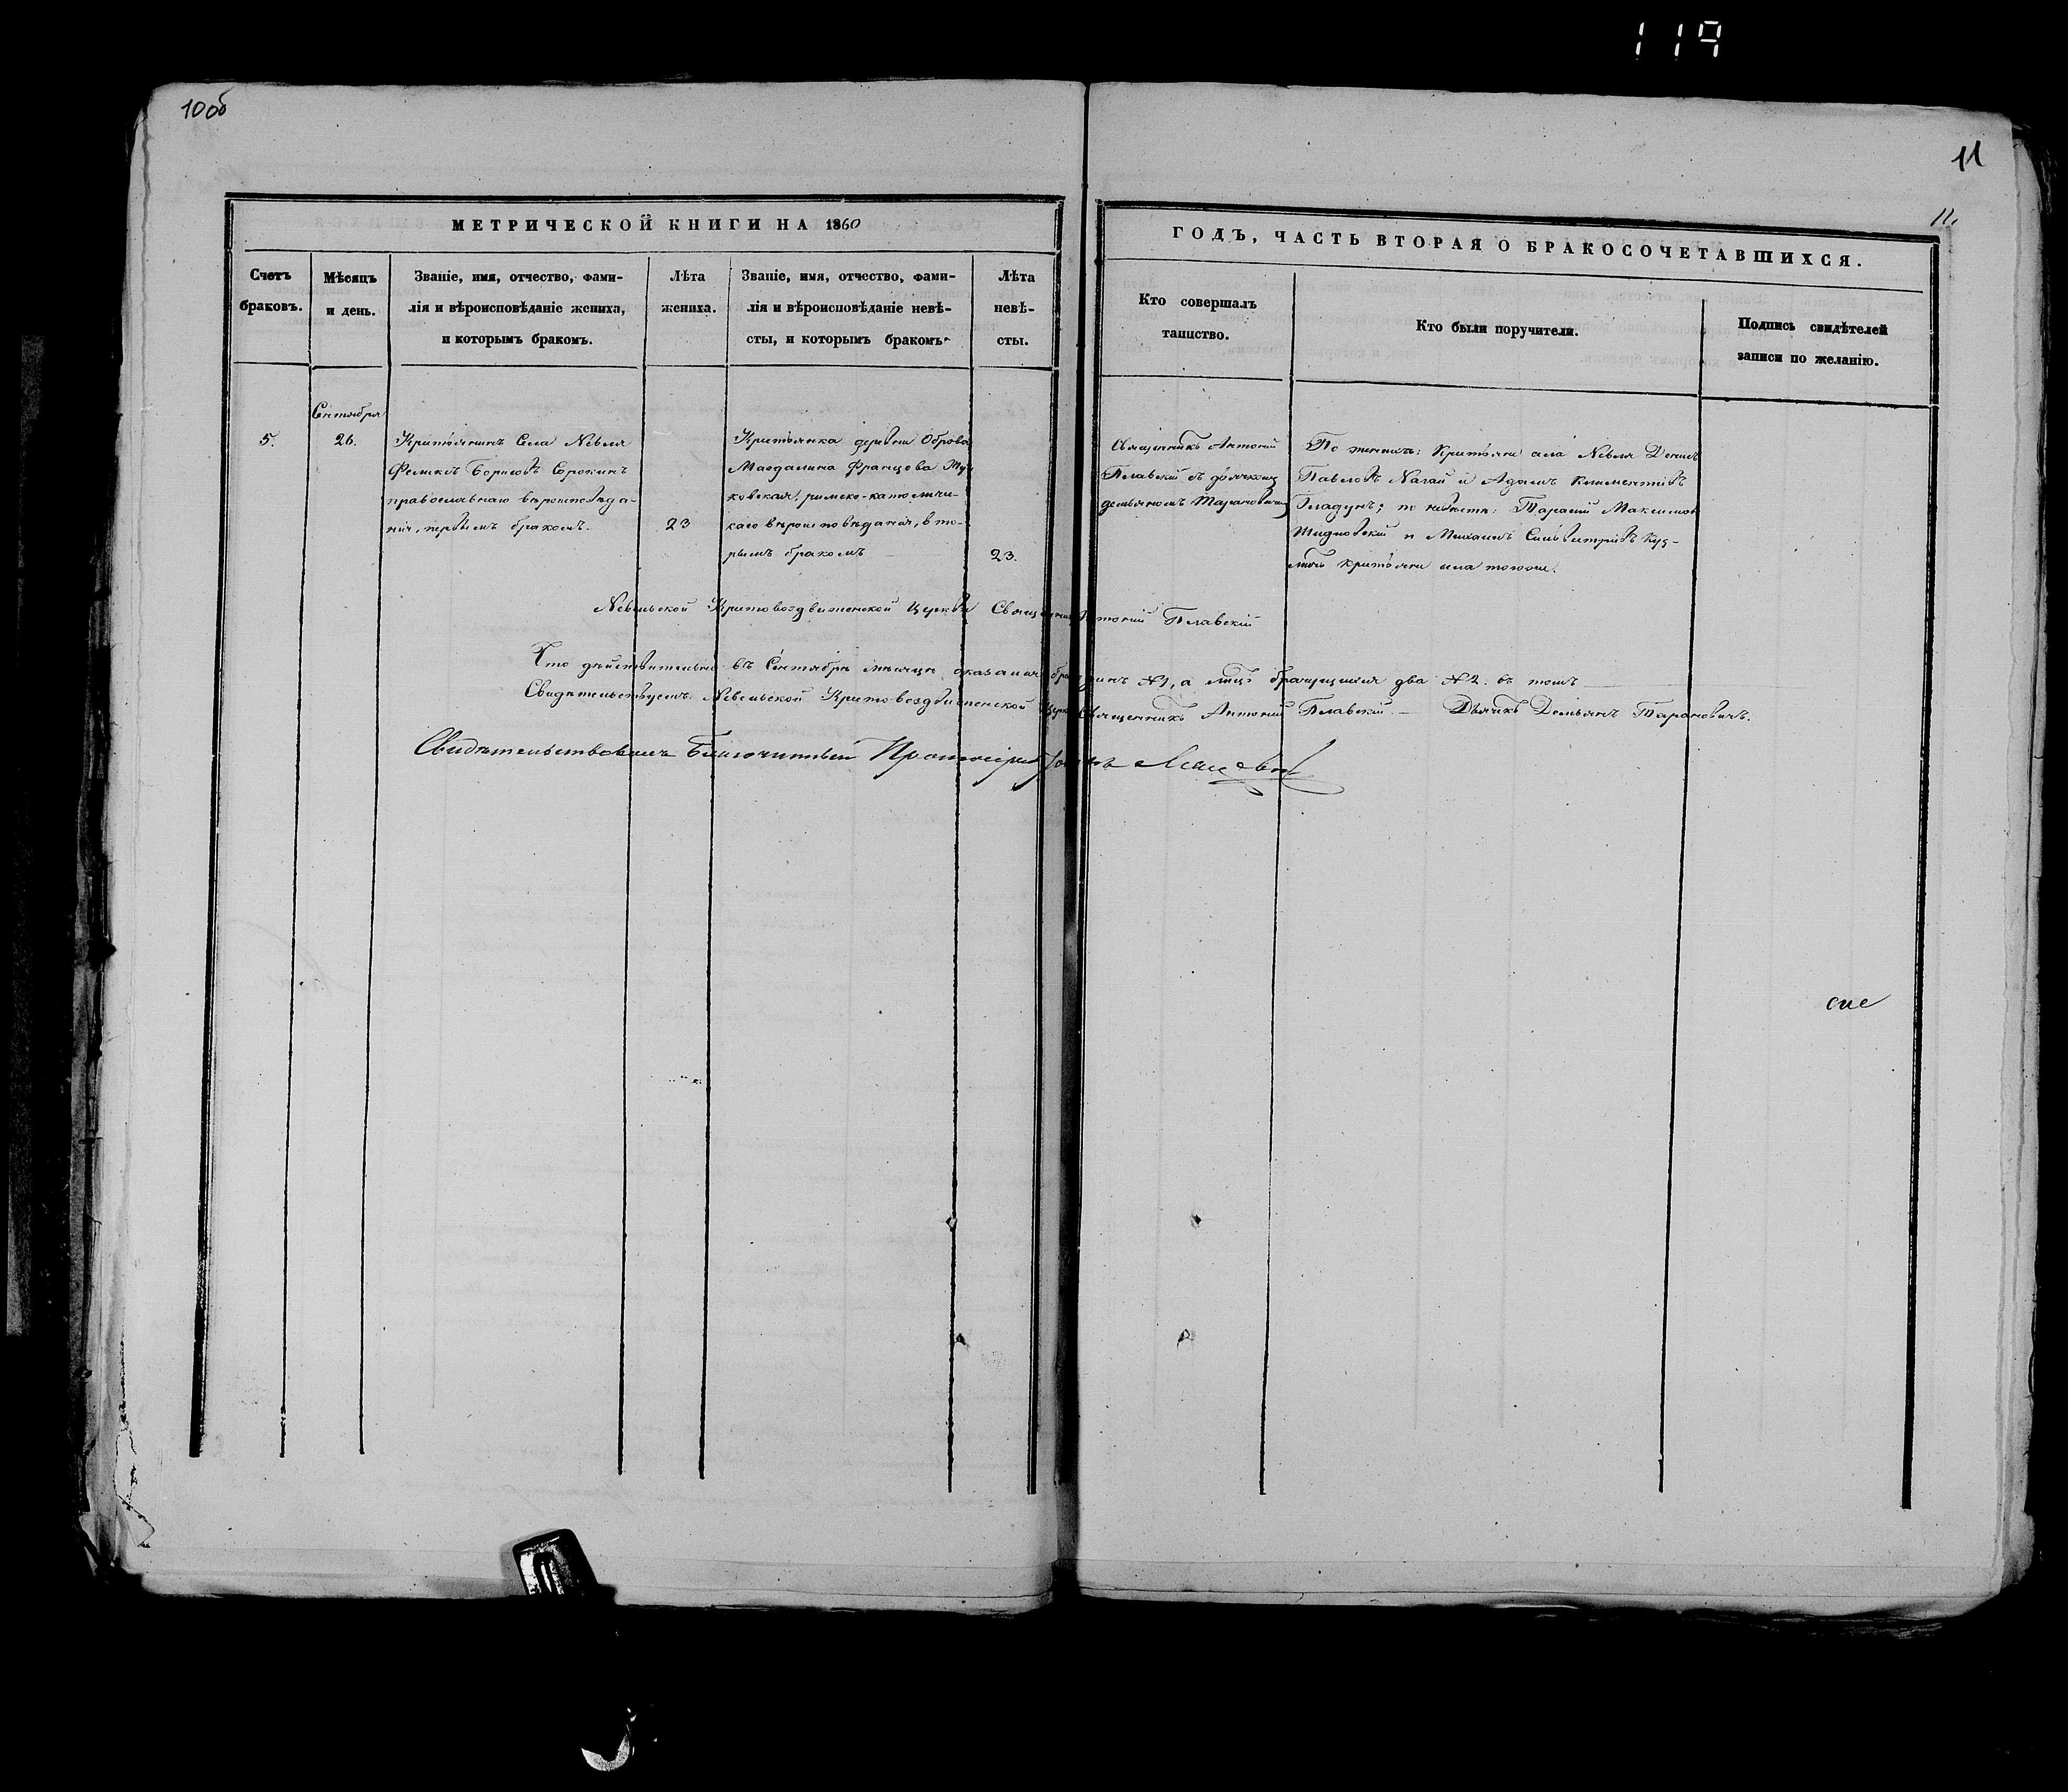 119
10об
11
11.
МЕТРИЧЕСКОЙ КНИГИ НА 1860
ГОДЪ, ЧАСТЬ ВТОРАЯ О БРАКОСОЧЕТАВШИХСЯ.
Счетъ
браковъ.
Мѣсяцъ
и день.
Званіе, имя, отчество, фами-
лія и вѣроисповѣданіе жениха,
и которымъ бракомъ.
Лѣта
жениха.
Званіе, имя, отчество, фами-
лія и вѣроисповѣданіе невѣ-
сты, и которымъ бракомъ.
Лѣта
невѣ-
сты.
Кто совершалъ
таинство.
Кто были поручители.
Подпись свидѣтелей
записи по желанію.
5.
Сентября
26.
Крестьянинъ Села Невля
Феликсъ Борисовъ Сорокинъ
православнаго вѣроисповѣда-
нія, первымъ бракомъ.
23
Крестьянка деревни Оброва
Магдалина Францова
ковская, римско-католиче-
каго вѣроисповѣданія, вто-
рымъ бракомъ
23.
Священникъ Антоній
Плавскій съ дьячкомъ
Демьяномъ Тарановичемъ
По женихѣ: Крестьяне села Невля Денисъ
Павловъ Нагай и Адамъ Климентіевъ
Гладунъ; по невѣстѣ: Тарасій Максимов
Жидковскій и Михаилъ Куз-
мичъ крестьяне села тогоже.
Невельской Крестовоздвиженской Церкви Священникъ Антоній Плавскій
Что дѣйствительно въ Сентябрѣ мѣсяцѣ оказался бракъ одинъ №1, а лицъ брачущихся два №2. въ томъ
Свидѣтельствуемъ. Невельской Крестовоздвиженской Церкви Священникъ Антоній Плавскій. — Дьячокъ Демьянъ Тарановичъ.
Свидѣтельствовалъ Благочинный Протоіерей Іоаннъ